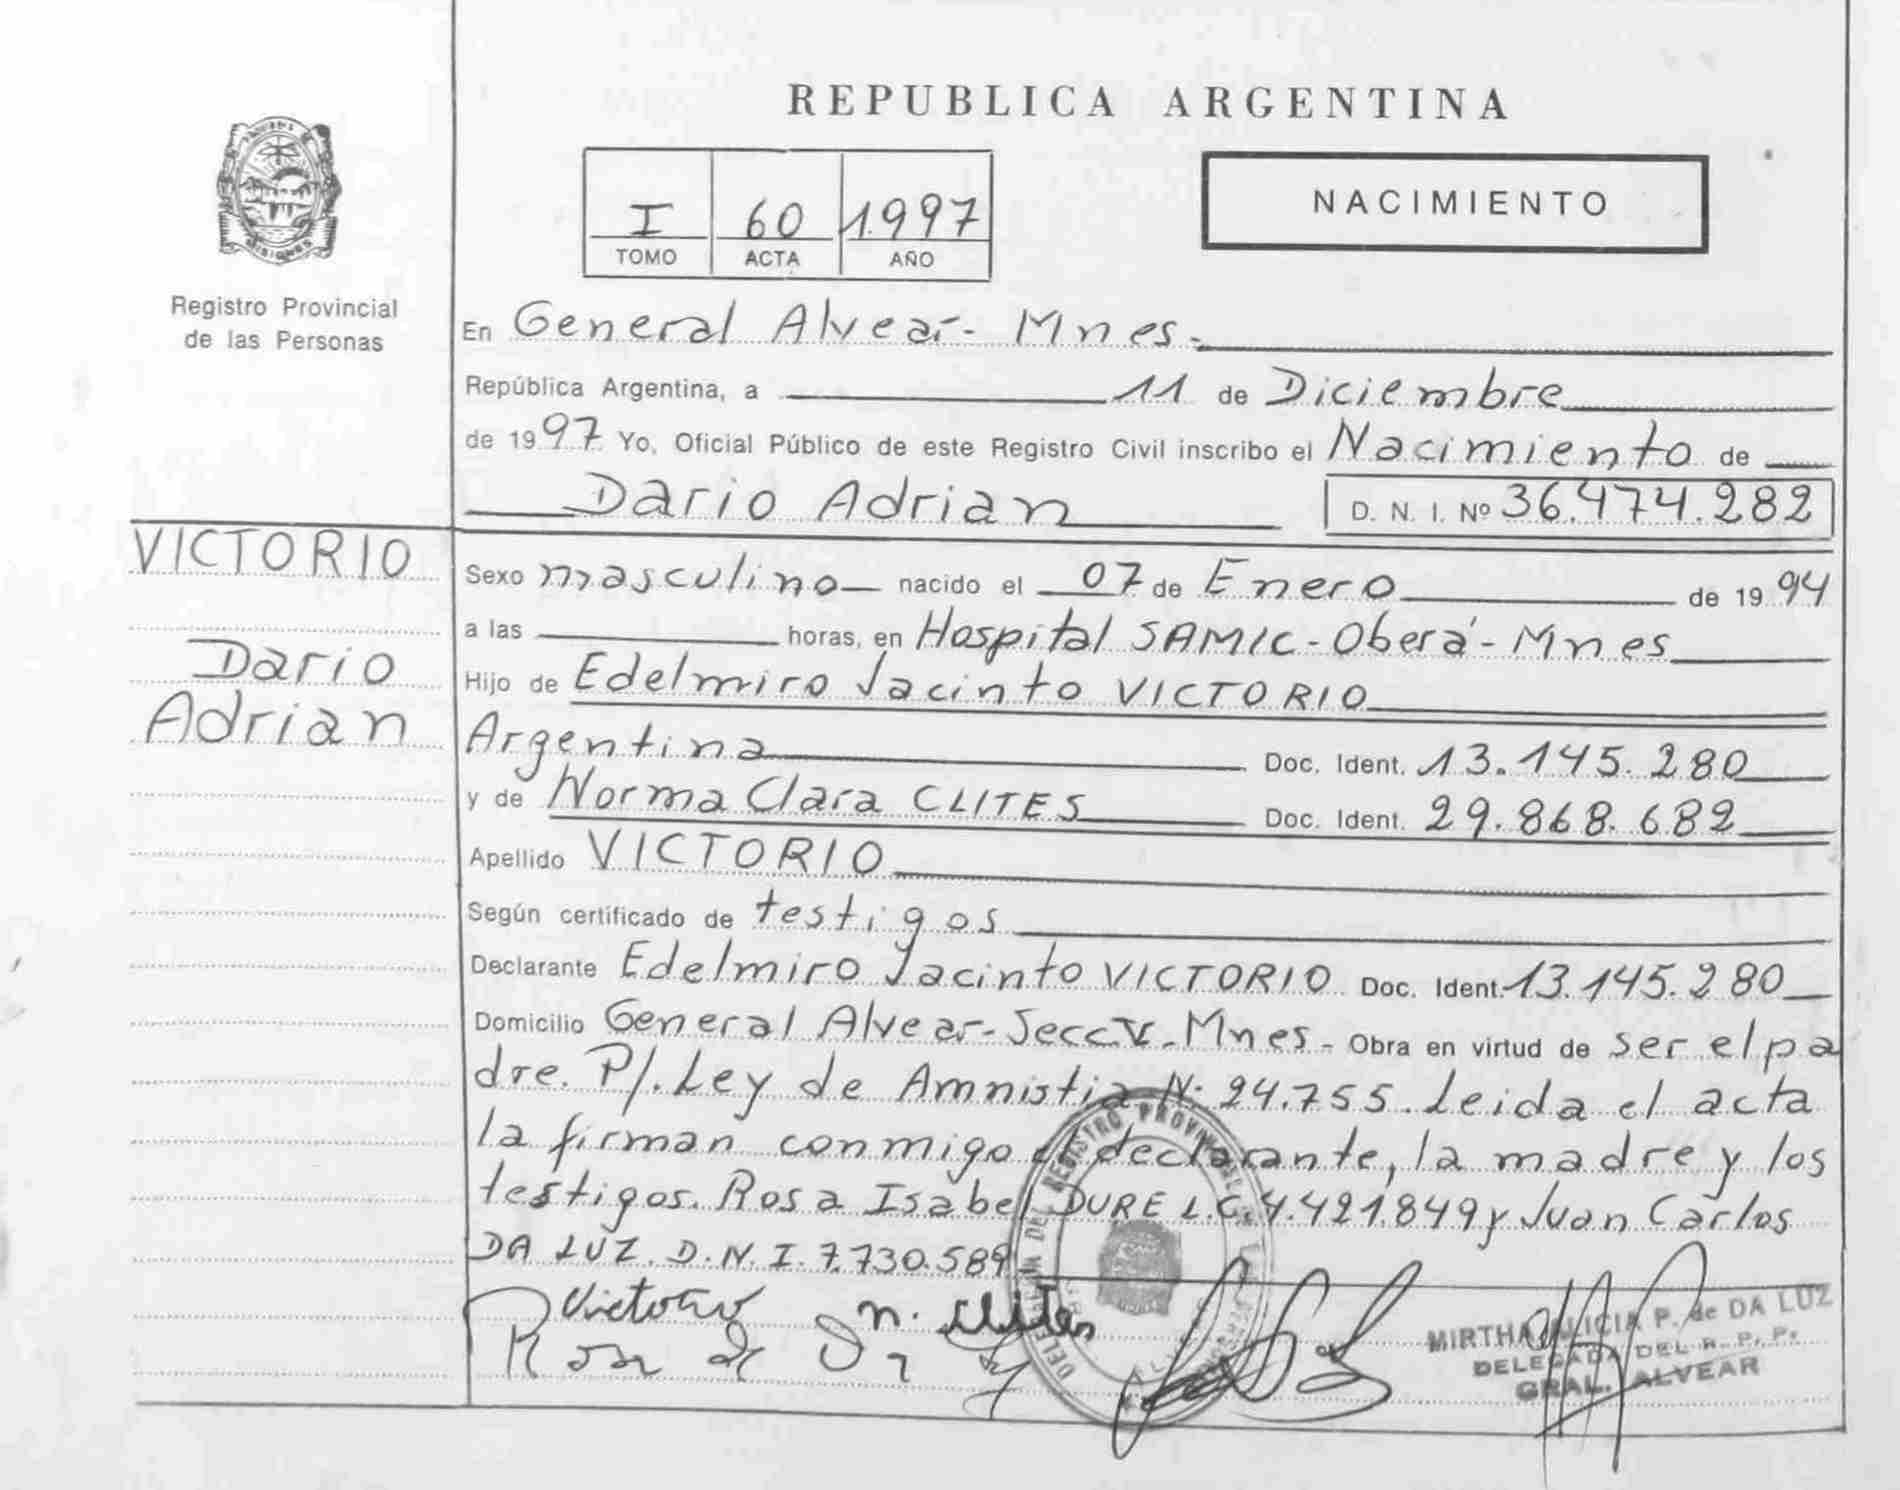 REPUBLICA ARGENTINA
MISIONES
Registro Provincial
de las Personas
I 60 1.997
TOMO ACTA AÑO
NACIMIENTO
En General Alvear- Mnes.
República Argentina, a 11 de Diciembre
de 1997 Yo, Oficial Público de este Registro Civil inscribo el Nacimiento de
Dario Adrian D. N. I. Nº 36.474.282
VICTORIO
Dario
Adrian
Sexo masculino nacido el 07 de Enero de 1994
a las horas, en Hospital SAMIC-Oberá-Mnes
Hijo de Edelmiro Jacinto VICTORIO
Argentina Doc. Ident. 13.145.280
y de Norma Clara CLITES Doc. Ident. 29.868.682
Apellido VICTORIO
Según certificado de testigos
Declarante Edelmiro Jacinto VICTORIO Doc. Ident. 13.145.280
Domicilio General Alvear-Secc.V-Mnes- Obra en virtud de ser el pa
dre. P/. Ley de Amnistia N: 24.755. Leida el acta
la firman conmigo el declarante, la madre y los
testigos. Rosa Isabel DURE L.C. 4.421.849 y Juan Carlos
DA LUZ. D.N.I. 7.730.589
Victorio n. Clites
Rosa de Da
MIRTHA ALICIA P. de DA LUZ
DELEGADA DEL R. P. P.
GRAL. ALVEAR